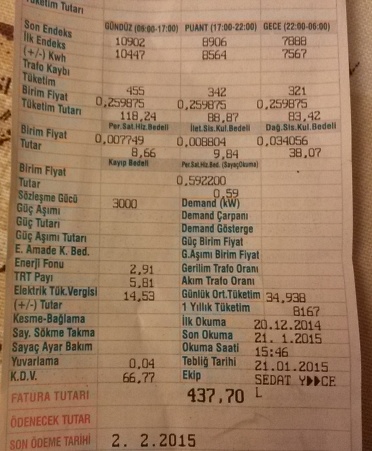 Tüketim Tutarı
GÜNDÜZ (06:00-17:00) PUANT (17:00-22:00) GECE (22:00-06:00)
Son Endeks 10902 8906 7888
İlk Endeks 10447 8564 7567
(+/-) Kwh
Trafo Kaybı
Tüketim 455 342 321
Birim Fiyat 0,259875 0,259875 0,259875
Tüketim Tutarı 118,24 88,87 83,42
Per.Sat.Hiz.Bedeli İlet.Sis.Kul.Bedeli Dağ.Sis.Kul.Bedeli
Birim Fiyat 0,007749 0,008804 0,034056
Tutar 8,66 9,84 38,07
Kayıp Bedeli Per.Sat.Hiz.Bed. (SayaçOkuma)
Birim Fiyat 0,592200
Tutar 0,59
Sözleşme Gücü 3000 Demand (kW)
Güç Aşımı Demand Çarpanı
Güç Tutarı Demand Gösterge
Güç Aşımı Tutarı Güç Birim Fiyat
E. Amade K. Bed. G.Aşımı Birim Fiyat
Enerji Fonu 2,91 Gerilim Trafo Oranı
TRT Payı 5,81 Akım Trafo Oranı
Elektrik Tük.Vergisi 14,53 Günlük Ort.Tüketim 34,938
(+/-) Tutar 1 Yıllık Tüketim 8167
Kesme-Bağlama İlk Okuma 20.12.2014
Say. Sökme Takma Son Okuma 21. 1.2015
Sayaç Ayar Bakım Okuma Saati 15:46
Yuvarlama 0,04 Tebliğ Tarihi 21.01.2015
K.D.V. 66,77 Ekip SEDAT Y CE
FATURA TUTARI 437,70 L
ÖDENECEK TUTAR
SON ÖDEME TARİHİ 2. 2.2015